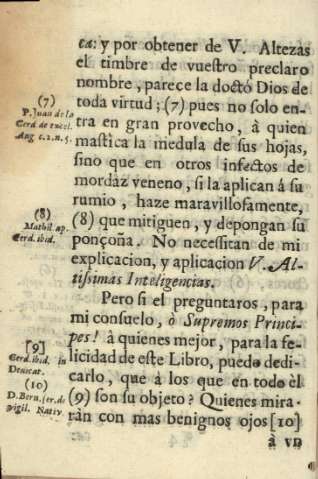 ca: y por obtener de V. Altezas
el timbre de vuestro preclaro
nombre, parece la doctó Dios de
toda virtud; (7) pues no solo en-
tra en gran provecho, à quien
mastica la medula de sus hojas,
sino que en otros infectos de
mordaz veneno, si la aplican á su
rumio, haze maravillosamente,
(8) que mitiguen, y depongan su
ponçoña. No necessitan de mi
explicacion, y aplicacion V. Al-
tissimas Inteligencias.
Pero si el preguntaros, para
mi consuelo, ò Supremos Princi-
pes! à quienes mejor, para la fe-
licidad de este Libro, puedo dedi-
carlo, que á los que en todo èl
(9) son su objeto? Quienes mira-
ràn con mas benignos ojos [10]
à vn
(7)
P. Juan de la
Cerd. de excel.
Ang. c. 2. n. 5.
(8)
Mathil. ap.
Cerd. ibid.
[9]
Cerd. ibid. in
Dedicat.
(10)
D. Bern. ser. de
vigil. Nativ.